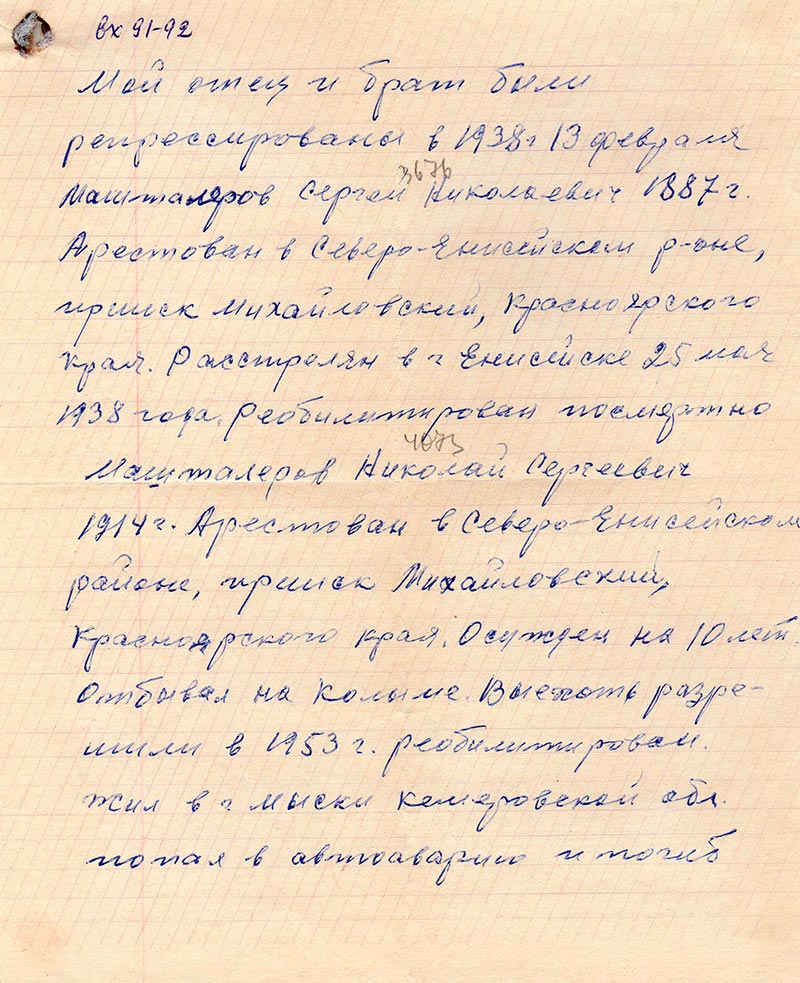 вх 91-92
Мой отец и брат были
репрессированы в 1938 г 13 февраля
3676
Машталеров Сергей Николаевич 1887 г.
Арестован в Северо-Енисейском р-оне,
прииск Михайловский, Красноярского
края. Расстрелян в г Енисейске 25 мая
1938 года. Реобилитирован посмертно
4073
Машталеров Николай Сергеевич
1914 г. Арестован в Северо-Енисейском
районе, прииск Михайловский,
Красноярского края. Осужден на 10 лет.
Отбывал на Колыме. Выехать разре-
шили в 1953 г. реобилитирован.
Жил в г Мыски Кемеровской обл.
попал в автоаварию и погиб